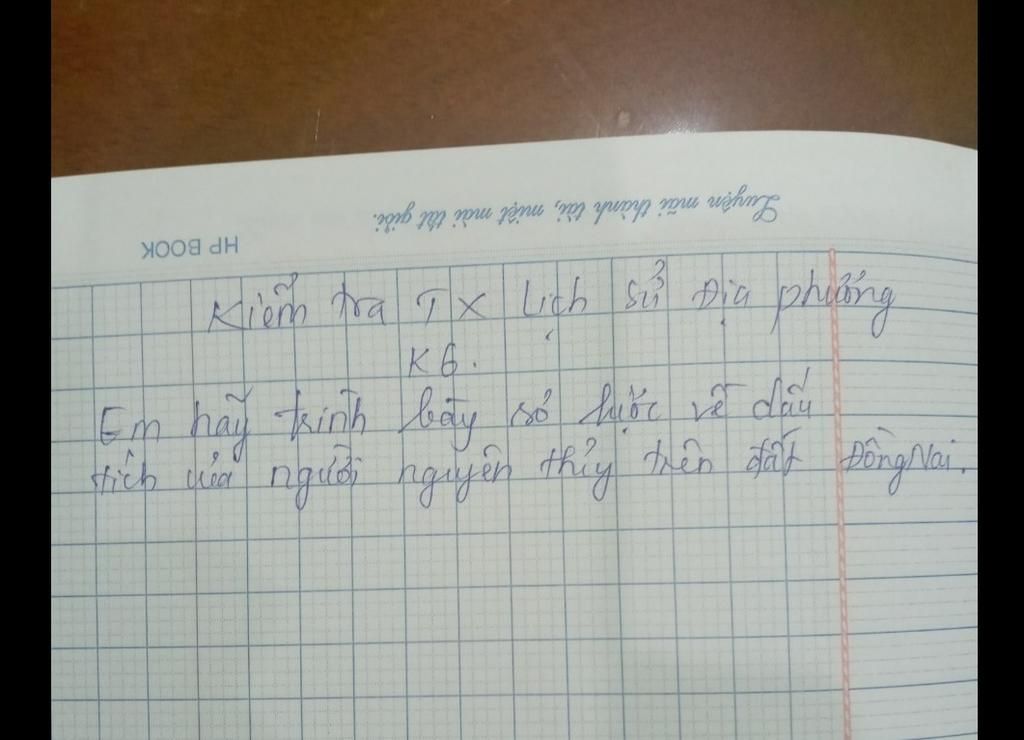 Luyện mãi thành tài, miệt mài tất giỏi.
HP BOOK
Kiểm tra TX Lịch sử Địa phương
K6.
Em hãy trình bày sơ lược về dấu
tích của người nguyên thủy trên đất Đồng Nai.